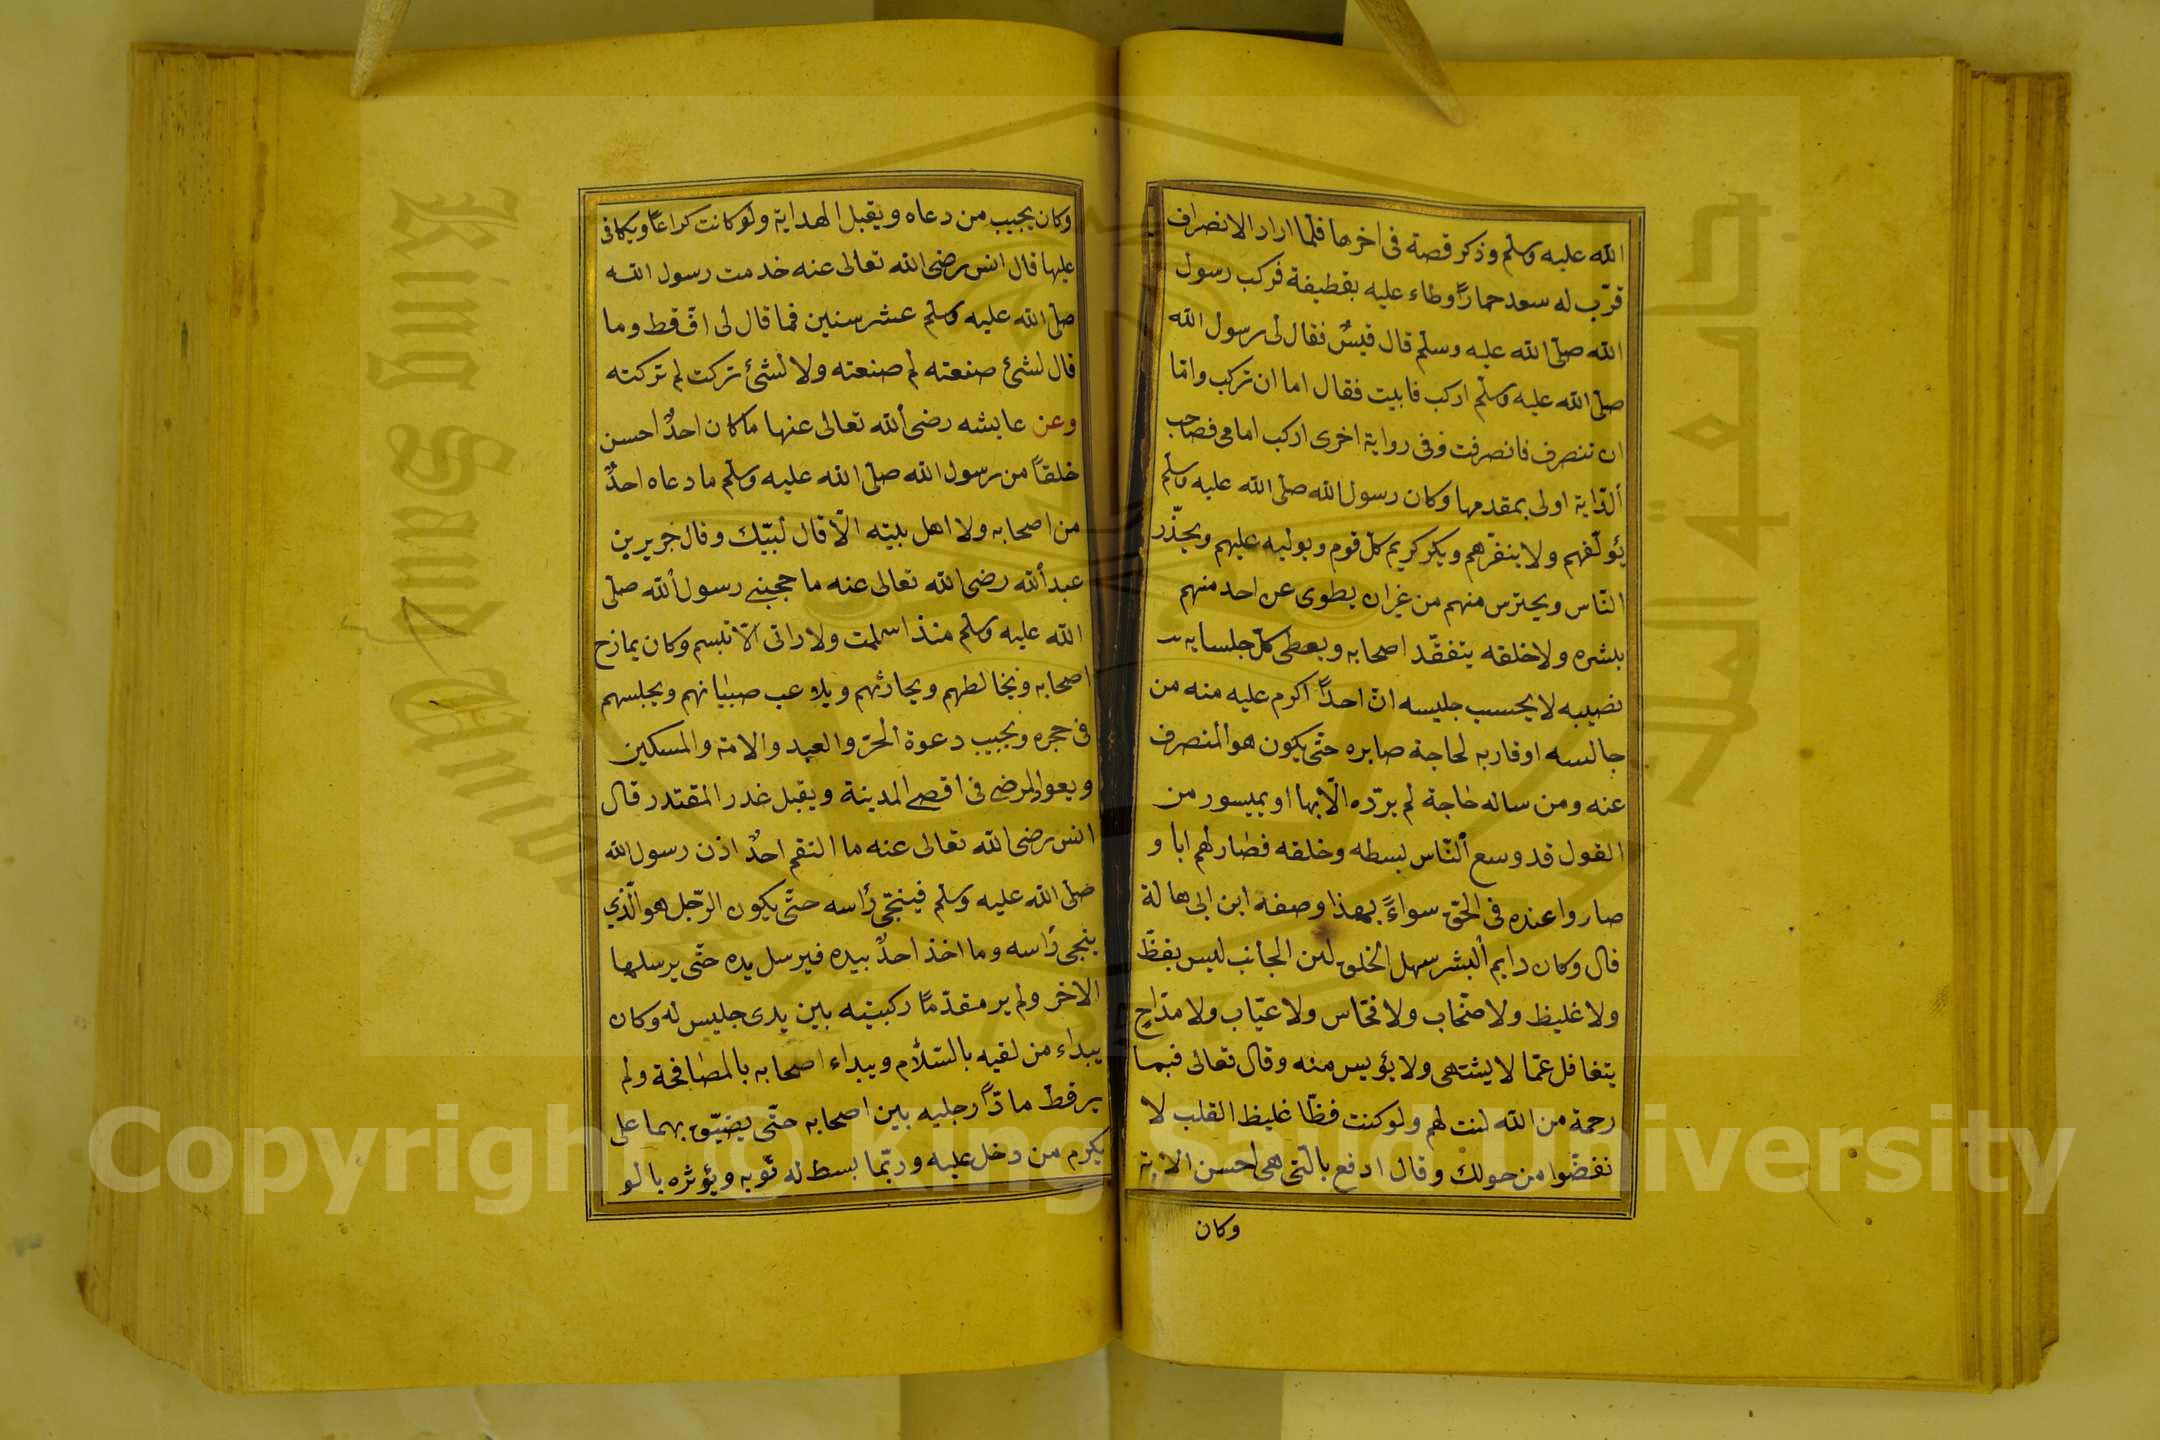 الله عليه وسلم وذكر قصة فى اخرها فلما اراد الانصراف
قرّب له سعد حمارًا وطاء عليه بقطيفة فركب رسول
الله صلى الله عليه وسلم قال قيسٌ فقال لى رسول الله
صلى الله عليه وسلم اركب فابيت فقال اما ان تركب واما
ان تنصرف فانصرفت وفى رواية اخرى اركب امامى فصاحب
الدّاية اولى بمقدمها وكان رسول الله صلى الله عليه وسلم
يؤلّفهم ولا ينفّرهم ويكر كريم كل قوم ويوليه عليهم ويحذّر
النّاس ويحترس منهم من غيران يطوى عن احد منهم
بشره ولا خلقه يتفقّد اصحابه ويعطى كلّ جلسايه
نصيبه لا يحسب جليسه انّ احدًا اكرم عليه منه من
جالسه اوقاربه لحاجة صابره حتّى يكون هو المنصرف
عنه ومن ساله حاجة لم يردّه الّا بها او بميسور من
القول قد وسع النّاس بسطه وخلقه فصار لهم ابا و
صاروا عنده فى الحق سواءً بهذا وصفه ابن ابى هالة
قال وكان دايم البشر سهل الخلق لين الجانب ليس بفظّ
ولا غليظ ولا صخّاب ولا فحّاش ولا عيّاب ولا مدّاح
يتغافل عمّا لا يشتهى ولا يؤيس منه وقال تعالى فبما
رحمة من الله لنت لهم ولو كنت فظّا غليظ القلب لا
نفضّوا من حولك وقال ادفع بالّتى هى احسن الاية
وكان
وكان يجيب من دعاه ويقبل الهداية ولو كانت كراعًا ويكافى
عليها قال انس رضى الله تعالى عنه خدمت رسول الله
صلى الله عليه وسلم عشر سنين فما قال لى افّ قط وما
قال لشئ صنعته لم صنعته ولا لشئ تركت لم تركته
وعن عايشه رضى الله تعالى عنها ما كان احدٌ احسن
خلقًا من رسول الله صلى الله عليه وسلم ما دعاه احدٌ
من اصحابه ولا اهل بيته الّا قال لبّيك وقال جريربن
عبد الله رضى الله تعالى عنه ما حجبنى رسول الله صلى
الله عليه وسلم منذ اسلمت ولا رانى الّا تبسم وكان يمازح
اصحابه ويخالطهم ويحادثهم ويلاعب صبيانهم ويجلسهم
فى حجره ويجيب دعوة الحرّ والعبد والامة والمسكين
ويعود المرضى فى اقصى المدينة ويقبل عذر المقتدر قال
انس رضى الله تعالى عنه ما التقم احدٌ اذن رسول الله
صلى الله عليه وسلم فينحّى رأسه حتّى يكون الرّجل هو الّذي
ينحى رأسه وما اخذ احدٌ بيده فيرسل يده حتّى يرسلها
الاخر ولم ير مقدّمًا ركبتيه بين يدى جليس له وكان
يبداء من لقيه بالسّلام ويبداء اصحابه بالمصافحة ولم
ير قط مادّاً رجليه بين اصحابه حتّى يضيّق بهما على
يكرم من دخل عليه وربّما بسط له ثوبه ويؤثره بالو
King Saud University
جامعة الملك سعود
1957
Copyright © King Saud University